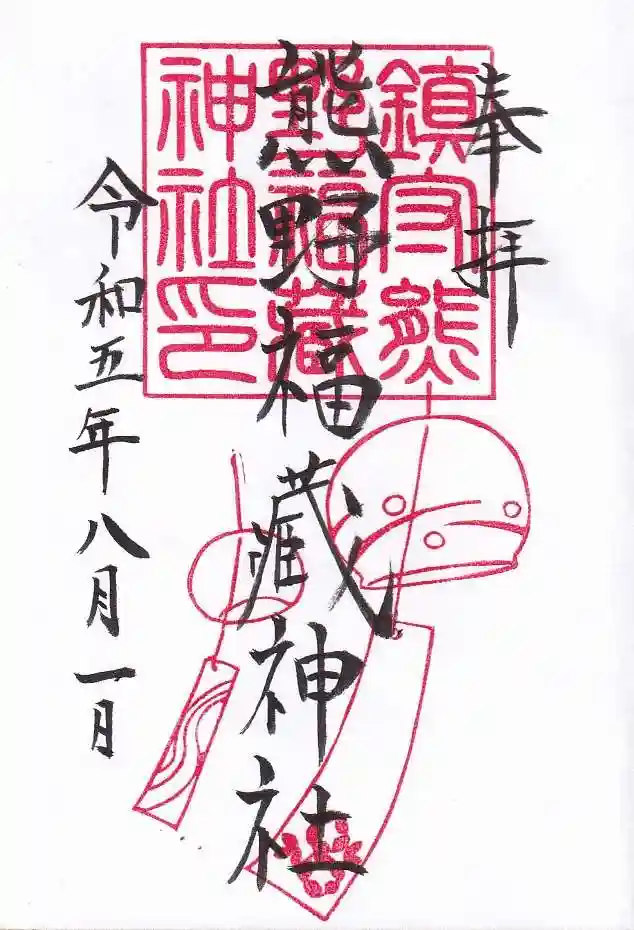 奉拝
熊野福藏神社
令和五年八月一日
鎮守熊
野福藏
神社印